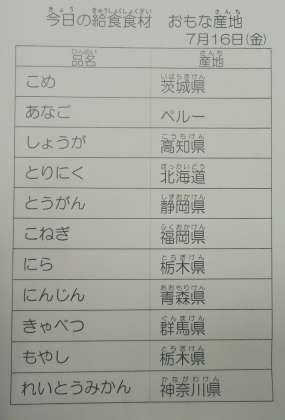 今日の給食食材 おもな産地
7月16日(金)
品名 産地
こめ 茨城県
あなご ペルー
しょうが 高知県
とりにく 北海道
とうがん 静岡県
こねぎ 福岡県
にら 栃木県
にんじん 青森県
きゃべつ 群馬県
もやし 栃木県
れいとうみかん 神奈川県